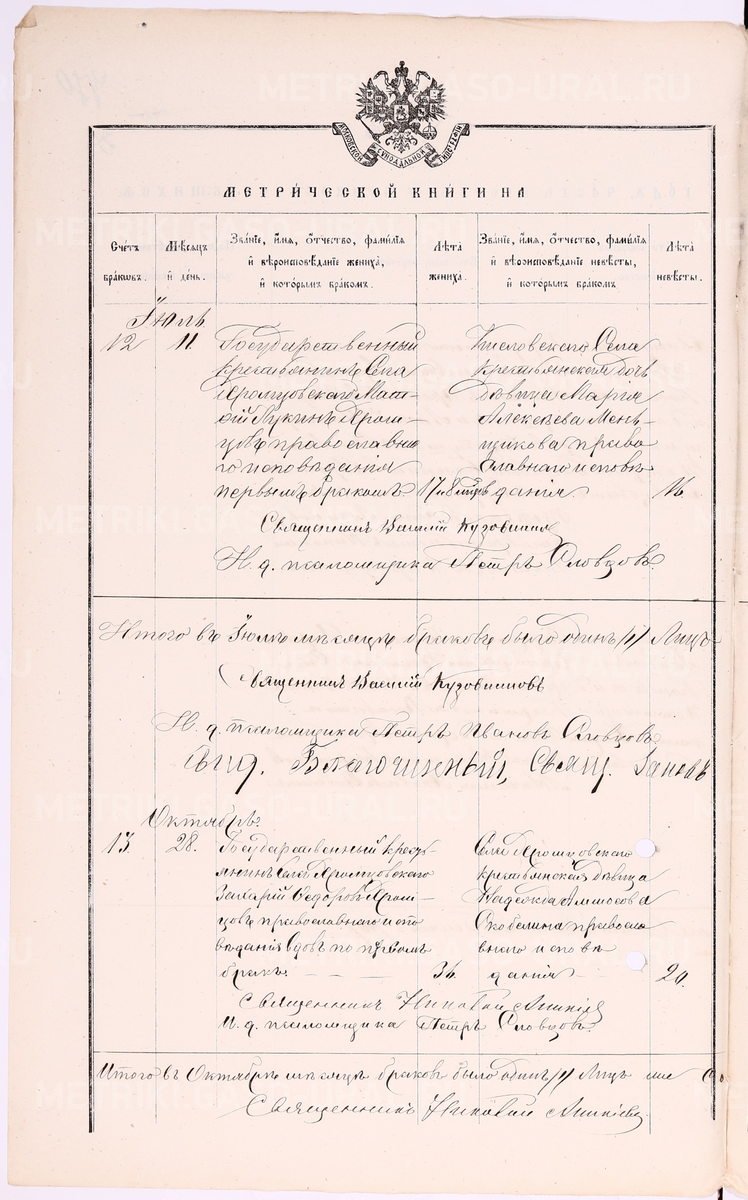 МЕТРИЧЕСКОЙ КНИГИ НА
Счетъ браковъ.
Мѣсяцъ и день.
Званіе, имя, отчество, фамилія и вѣроисповѣданіе жениха, и которымъ бракомъ.
Лѣта жениха.
Званіе, имя, отчество, фамилія и вѣроисповѣданіе невѣсты, и которымъ бракомъ.
Лѣта невѣсты.
Іюль.
12
11.
Государственный
крестьянинъ Села
Яромцовскаго
Лукинъ
православна
го исповѣданія
первымъ бракомъ.
17
Кисловскаго Села
крестьянская дочь
дѣвица Марія
Алексѣева Мень-
щикова право
славнаго исповѣ
данія
Священникъ Василій
И. д. псаломщика Петръ Словцовъ.
Итого въ Іюлѣ мѣсяцѣ браковъ было одинъ /1/ Лицъ
Священникъ Василій
И. д. псаломщика Петръ Ивановъ Словцовъ
Благочинный, Свящ.
Октябрь.
13
28.
Государственный кресть
янинъ села Яромцовскаго
Захарій Ѳедоровъ
православнаго испо
вѣданія вдовъ по первомъ
бракѣ
36.
Села Яромцовскаго
крестьянская дѣвица
Надежда
православ
наго исповѣ
данія
20.
Священникъ Николай
И. д. псаломщика Петръ Словцовъ.
Итого въ Октябрѣ мѣсяцѣ браковъ было одинъ /1/ Лицъ
Священникъ Николай